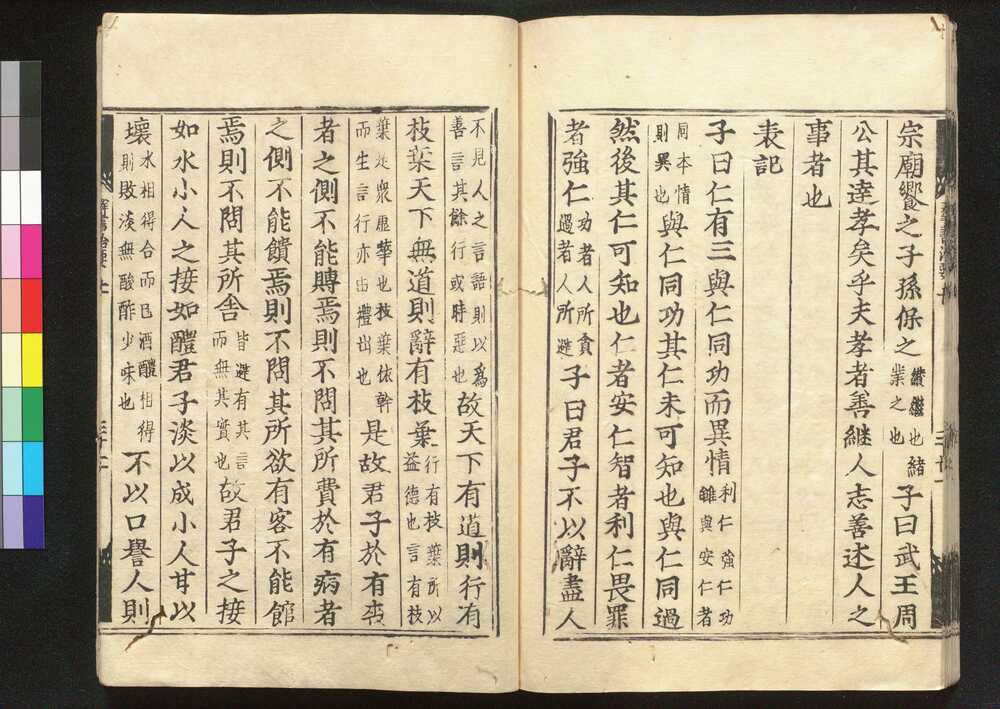 宗廟饗之子孫保之纘繼也緒業之也子曰武王周
公其達孝矣乎夫孝者善継人志善述人之
事者也
表記
子曰仁有三與仁同功而異情利仁強仁功雖與安仁者
同本情則異也與仁同功其仁未可知也與仁同過
然後其仁可知也仁者安仁智者利仁畏罪
者強仁功者人所貪過者人所避子曰君子不以辭盡人
不見人之言語則以爲善言其餘行或時惡也故天下有道則行有
枝葉天下無道則辭有枝葉行有枝葉所以益德也言有枝
葉是衆虛華也枝葉依幹而生言行亦由禮出也是故君子於有喪
者之側不能賻焉則不問其所費於有病者
之側不能饋焉則不問其所欲有客不能館
焉則不問其所舍皆避有其言而無其實也故君子之接
如水小人之接如醴君子淡以成小人甘以
壞水相得合而已酒醴相得則敗淡無酸酢少味也不以口譽人則